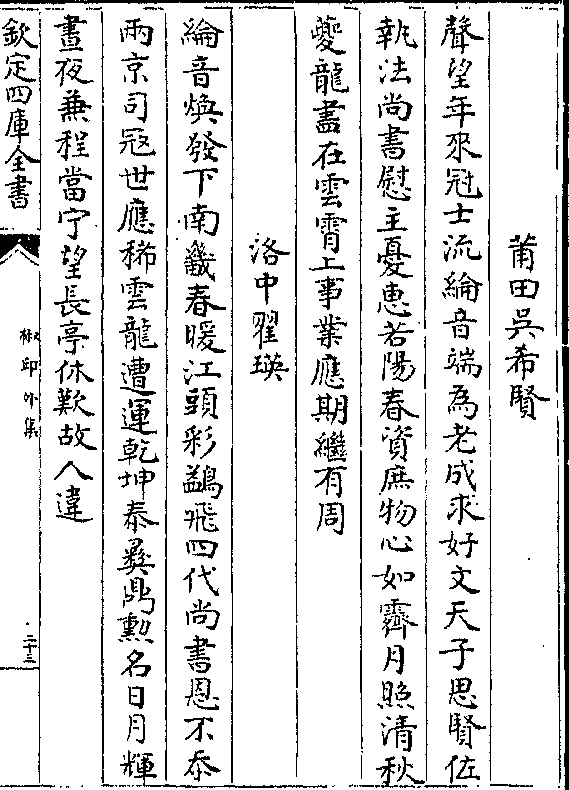 莆田吳希賢
聲望年來冠士流綸音端為老成求好文天子思賢佐
執法尚書慰主憂惠若陽春資庶物心如霽月照清秋
夔龍盡在雲霄上事業應期繼有周
洛中翟瑛
綸音煥發下南畿春暖江頭彩鷁飛四代尚書恩不忝
兩京司冦世應稀雲龍遭運乾坤泰彛鼎勲名日月輝
晝夜兼程當宁望長亭休歎故人違
欽定四庫全書
椒邱外集
三十三